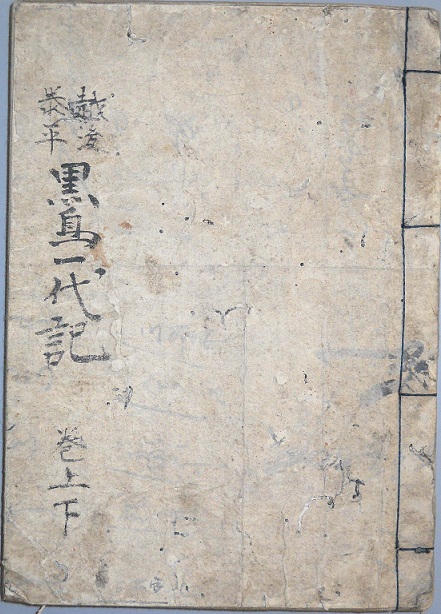 越後
泰平
黒鳥一代記
巻上下